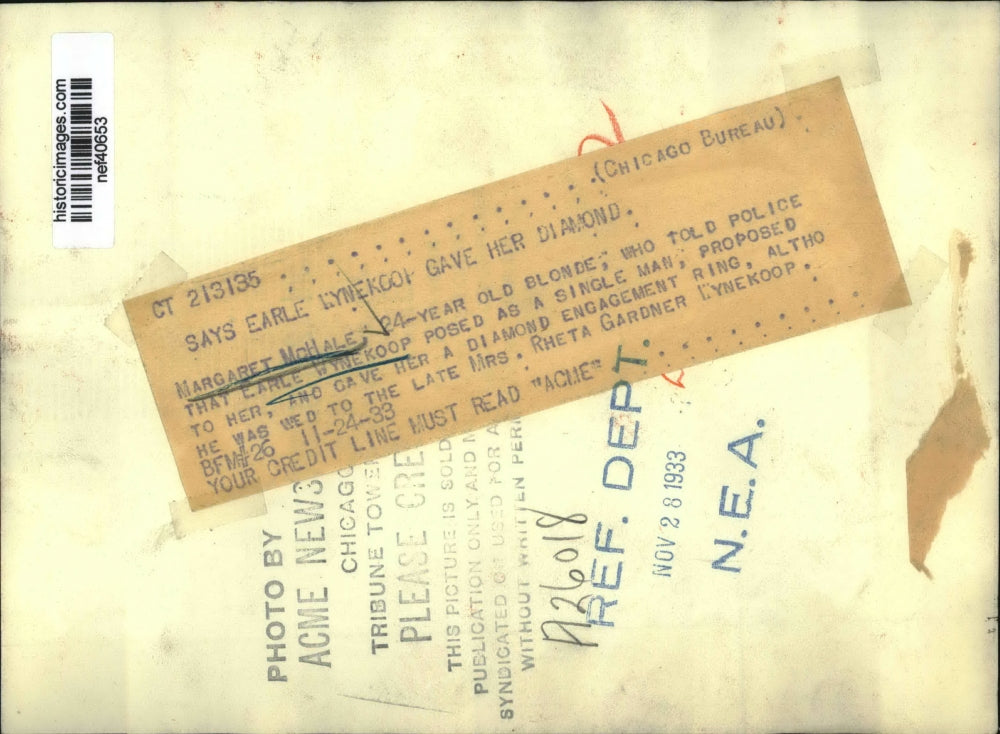 historicimages.com
nef40653
CT 213135 . . . . . . . . . . . . . . . . (CHICAGO BUREAU).
SAYS EARLE WYNEKOOP GAVE HER DIAMOND.
MARGARET MCHALE, 24-YEAR OLD BLONDE, WHO TOLD POLICE
THAT EARLE WYNEKOOP POSED AS A SINGLE MAN, PROPOSED
TO HER, AND GAVE HER A DIAMOND ENGAGEMENT RING, ALTHO
HE WAS WED TO THE LATE MRS. RHETA GARDNER WYNEKOOP.
BFM+26 11-24-33
YOUR CREDIT LINE MUST READ "ACME"
PHOTO BY
ACME NEWS
CHICAGO
TRIBUNE TOWER
PLEASE CRE
THIS PICTURE IS SOLD
PUBLICATION ONLY AND
SYNDICATED OR USED FOR A
WITHOUT WRITTEN PER
A26018
REF. DEPT.
NOV 28 1933
N.E.A.